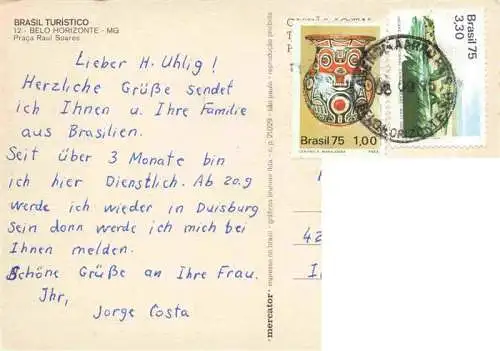 BRASIL TURÍSTICO
12 - BELO HORIZONTE - MG
Praça Raul Soares
Lieber H. Uhlig!
Herzliche Grüße sendet
ich Ihnen u. Ihre Familie
aus Brasilien.
Seit über 3 Monate bin
ich hier Dienstlich. Ab 20.9
werde ich wieder in Duisburg
sein dann werde ich mich bei
Ihnen melden.
Schöne Grüße an Ihre Frau.
Ihr,
Jorge Costa
mercator
impresso no brasil - são paulo - reprodução proibida
Brasil 75 1,00
Brasil 75
3,30
42